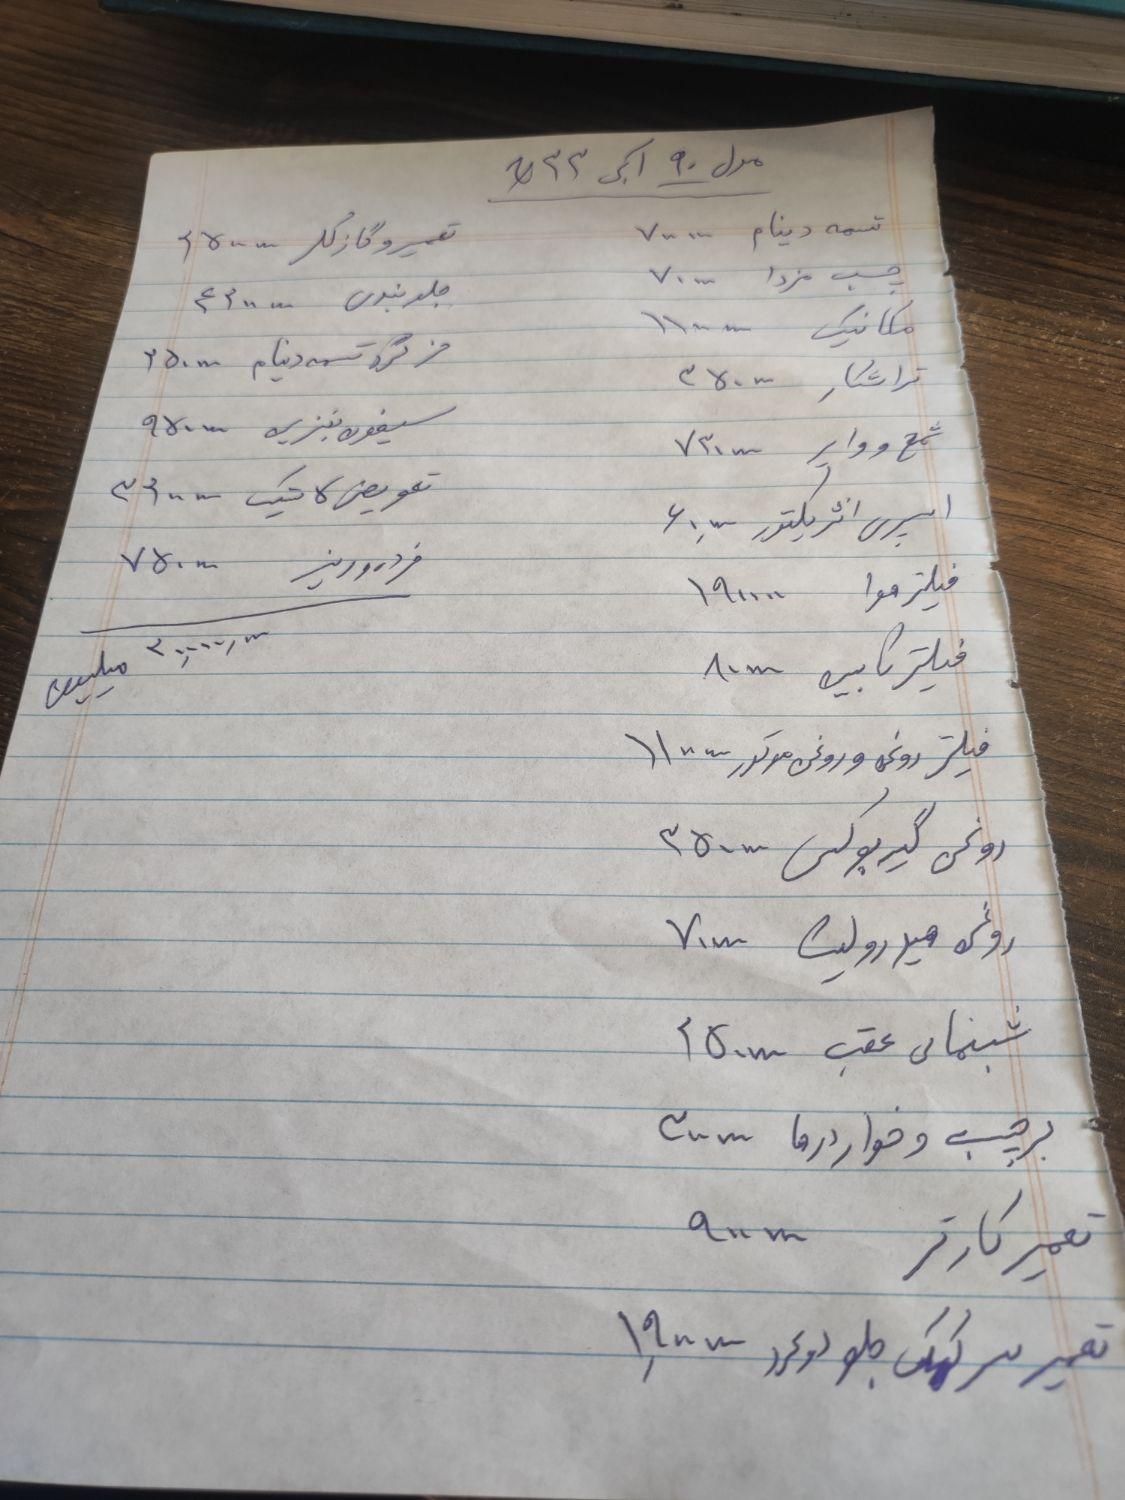 مدل ۹۰ آبی
تسمه دینام ۷۰۰۰۰۰
چسب مزدا ۷۰۰۰۰
مکانیک ۱۱۰۰۰۰۰
تراشکار ۳۵۰۰۰۰
شمع و وایر ۷۳۰۰۰۰
اسپری انژیکتور ۶۰٫۰۰۰
فیلتر هوا ۱۹۰۰۰۰
فیلتر کابین ۸۰۰۰۰
فیلتر روغن و روغن موتور ۱۱۰۰۰۰۰
روغن گیربوکس ۳۵۰۰۰۰
روغن هیدرولیک ۷۰۰۰۰
شبنمای عقب ۲۵۰۰۰۰
برچسب و خوار درها ۳۰۰۰۰۰
تعمیر کارتر ۹۰۰۰۰۰
تعمیر سر کمک جلو دو عدد ۱٫۹۰۰۰۰۰
تعمیر و گاز کولر
جلوبندی
هزگرد تسمه دینام ۲۵۰۰۰۰
سیفون بنزین ۹۵۰۰۰۰
تعویض لاستیک
خرده ریز ۷۵۰۰۰۰
میلیون